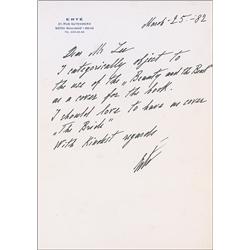 ERTÉ
March-25-82
Dear Mr Lee
I categorically object to
the use of the „Beauty and the Beast"
as a cover for the book.
I should love to have as cover
„The Bride"
With Kindest regards
Erté